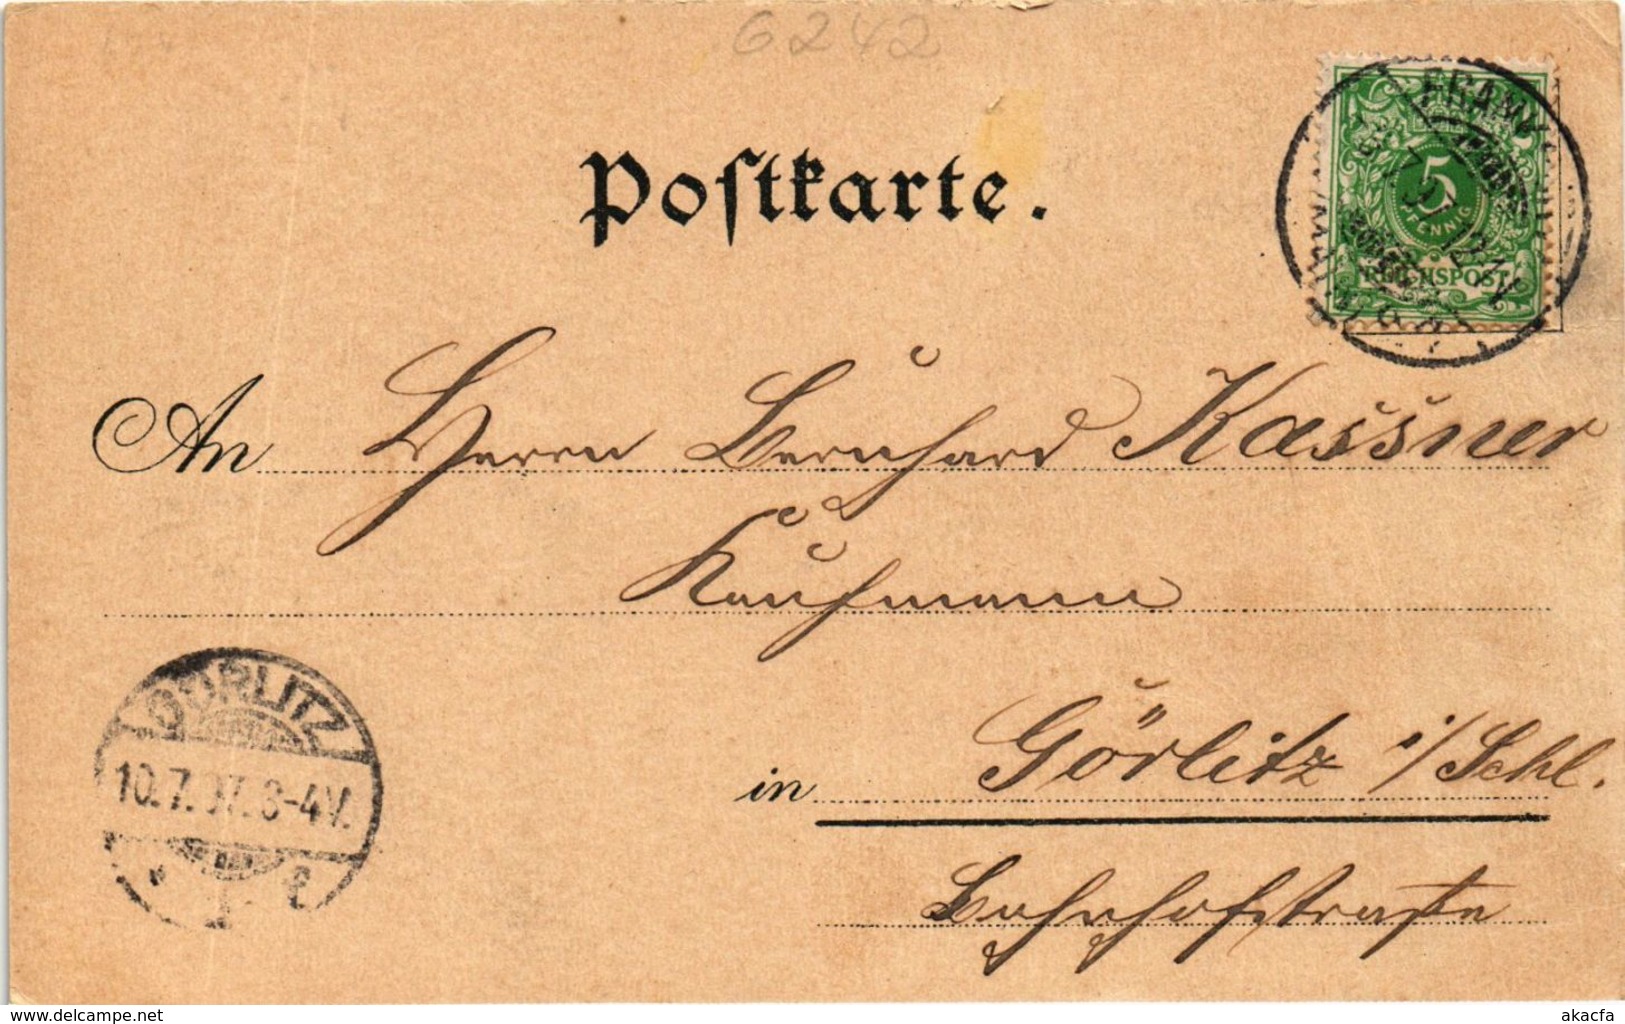 6242
Postkarte.
5
PFENNIG
REICHSPOST
12-1N
An Herrn Bernhard Kassner
Kaufmann
GÖRLITZ
10.7.97. 3-4V.
in Görlitz i/Schl.
Bahnhofstraße
www.delcampe.net
akacfa